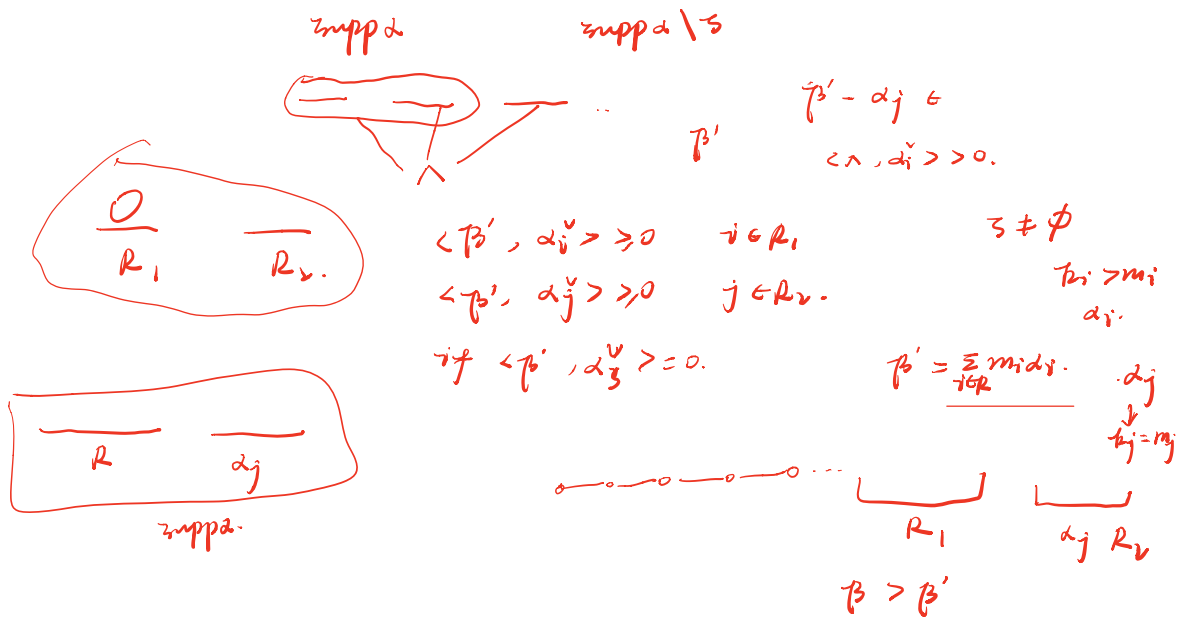 supp α
supp α \ S
β' - αj ∈
β'
< Λ, αi^∨ > > 0.
R1
R2.
< β', αi^∨ > ≥ 0 i ∈ R1
S ≠ ∅
< β', αj^∨ > ≥ 0 j ∈ R2.
ki > mi
αi.
if < β', α^∨ > = 0.
β' = Σ_{i∈R} mi αi.
αj
↓
kj = mj
R
αj
supp α.
...
R1
αj R2
β > β'